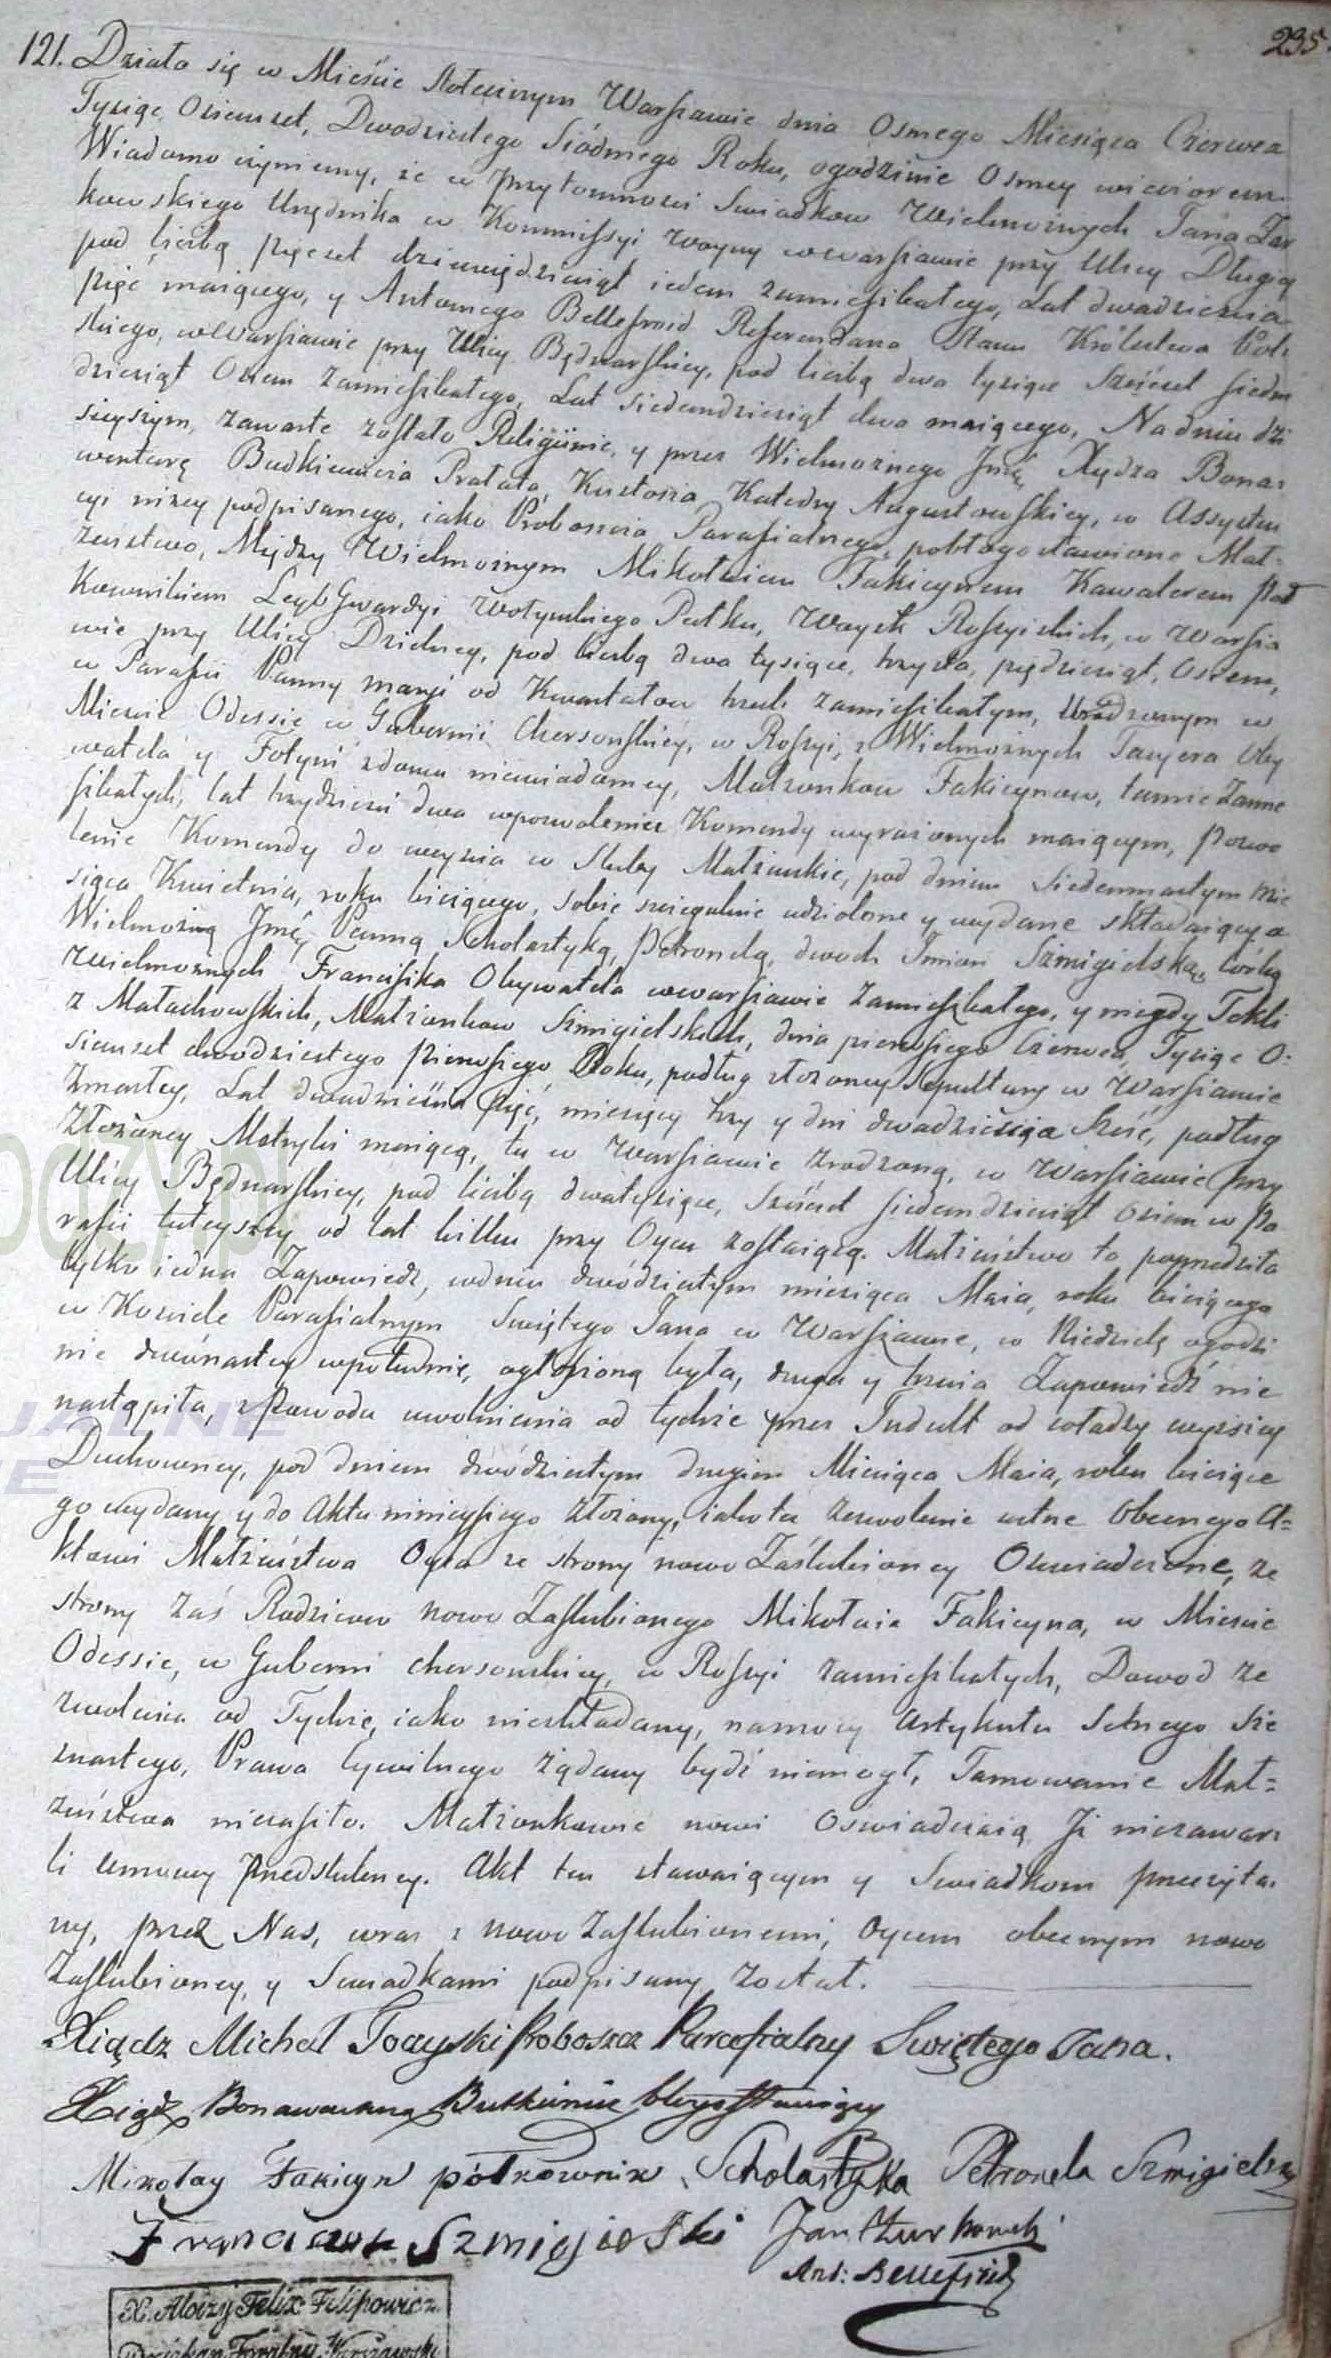 235.
121. Działo się w Mieście Stołecznym Warszawie dnia Osmego Miesiąca Czerwca
Tysiąc Osiemset, Dwudziestego Siódmego Roku, ogodzinie Osmey wieczorem.
Wiadomo czyniemy, że w przytomności Swiadkow Wielmożnych Jana Żur
kowskiego Urzędnika w Kommissyi Woyny wWarszawie przy Ulicy Długiey
pod liczbą pięcset dziewiędziesiąt ieden zamieszkałego, Lat dwadzieścia
pięć maiącego, y Antoniego Bellefroid Referendarza Stanu Królestwa Pol:
skiego, wWarszawie przy Ulicy Będnarskiey, pod liczbą dwa tysiące Sześcset siedm
dziesiąt Osiem Zamieszkałego, Lat siedemdziesiąt dwa maiącego, Na dniu dzi
sieyszym, zawarte zostało Religiinie, y przez Wielmożnego Jmę Xiędza Bona:
wenturę Butkiewicza Prałata, Kustosza Katedry Augustowskiey, w Assysten
cyi niżey podpisanego, iako Proboszcza Parafialnego, pobłogosławione Mał=
żeństwo, Między Wielmożnym Mikołaiem Fakicynem Kawalerem Poł
Kownikiem Leyb Gwardyi Wołyńskiego Pułku, Woysk Rossyiskich, w Warsza
wie przy Ulicy Dzielney, pod liczbą dwa tysiące, trzysta, piędziesiąt, Osiem,
w Parafii Panny Maryi od Kwartałow trzech zamieszkałym, Urodzonym w
Mieście Odessie w Gubernii Chersonskiey, w Rossyi, z Wielmożnych Oby
watela y Fotyni zdomu niewiadomey, Małżonkow Fakicynow, tamże Zamie
szkałych, lat trzydzieści dwa wpozwoleniu Komendy wyrażonych maiącym, Pozwo
lenie Komendy do weyścia w Śluby Małżenskie, pod dniem Siedemnastym Mie
siąca Kwietnia, roku bieżącego, sobie szczegulnie udzielone y wydane składaiącym a
Wielmożną Jmę Panną Scholastyką, Petronelą, dwoch Imion Szmigielską, Córką
Wielmożnych Franciszka Obywatela wWarszawie Zamieszkałego, y niegdy Tekli
z Małachowskich, Małżonkow Szmigielskich, dnia pierwszego Czerwca, Tysiąc O:
siemset dwudziestego pierwszego Roku, podług złożoney Sepultury w Warszawie
Zmarłey, Lat dwadzieścia pięć, miesięcy trzy y dni dwadzieścia sześć, podług
Złożoney Metryki maiącą, tu w Warszawie zrodzoną, w Warszawie przy
Ulicy Będnarskiey, pod liczbą dwatysiące, sześćset siedemdziesiąt osiem w Pa
rafii tuteyszey od lat kilku przy Oycu zostaiącą. Małżeństwo to poprzedziła
tylko iedna Zapowiedź, wdniu dwudziestym miesiąca Maia, roku bieżącego
w Kościele Parafialnym Swiętego Jana w Warszawie, w Niedzielę ogodzi
nie dwónastey wpołudnie, ogłoszoną była, druga y trzecia Zapowiedź nie
nastąpiła, z Powodu uwolnienia od tychże przez Indult od władzy wyższey
Duchowney, pod dniem dwódziestym drugim Miesiąca Maia, roku bieżące
go wydany y do Aktu ninieyszego złożony, iakoteż zezwolenie ustne Obecnego A=
ktowi Małżeństwa Oyca ze strony nowo Zaślubioney Oswiadczone, ze
strony zaś Rodzicow nowo Zaslubionego Mikołaia Fakicyna, w Mieście
Odessie, w Guberni chersonskiey, w Rossyi zamieszkałych, Dowod ze
zwolenia od Tychże, iako nieskładany, namocy Artykułu Setnego Sze
snastego, Prawa Cywilnego żądany bydź niemogł, Tamowanie Mał=
żeństwa niezaszło. Małżonkowie nowi Oswiadczaią Jż niezawar:
li Umowy Przedslubney. Akt ten stawaiącym y Swiadkom przeczyta:
ny, przez Nas, wraz z nowo Zaslubionemi, Oycem obecnym nowo
Zaslubioney, y Swiadkami podpisany został.
Xiądz Michał Proboszcz Parafialny Swiętego Jana.
Xiądz Bonawentura Butkiewicz błogosławiący
Mikołay Fakicyn półkownik Scholastyka Petronela Szmigielska
Franciszek Szmigielski Jan Żurkowski
Ant: Bellefroid
X. Aloizy Felix Filipowicz
Dziekan Foralny Warszawski